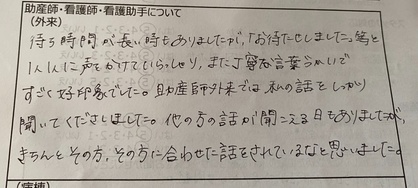 助産師・看護師・看護助手について
(外来)
待ち時間が長い時もありましたが、「お待たせしました。」等と
1人1人に声をかけていらっしゃり、また丁寧な言葉づかいで
すごく好印象でした。助産師外来では私の話をしっかり
聞いてくださいました。他の方の話が聞こえる日もありましたが、
きちんとその方、その方に合わせた話をされているなと思いました。
(病棟)